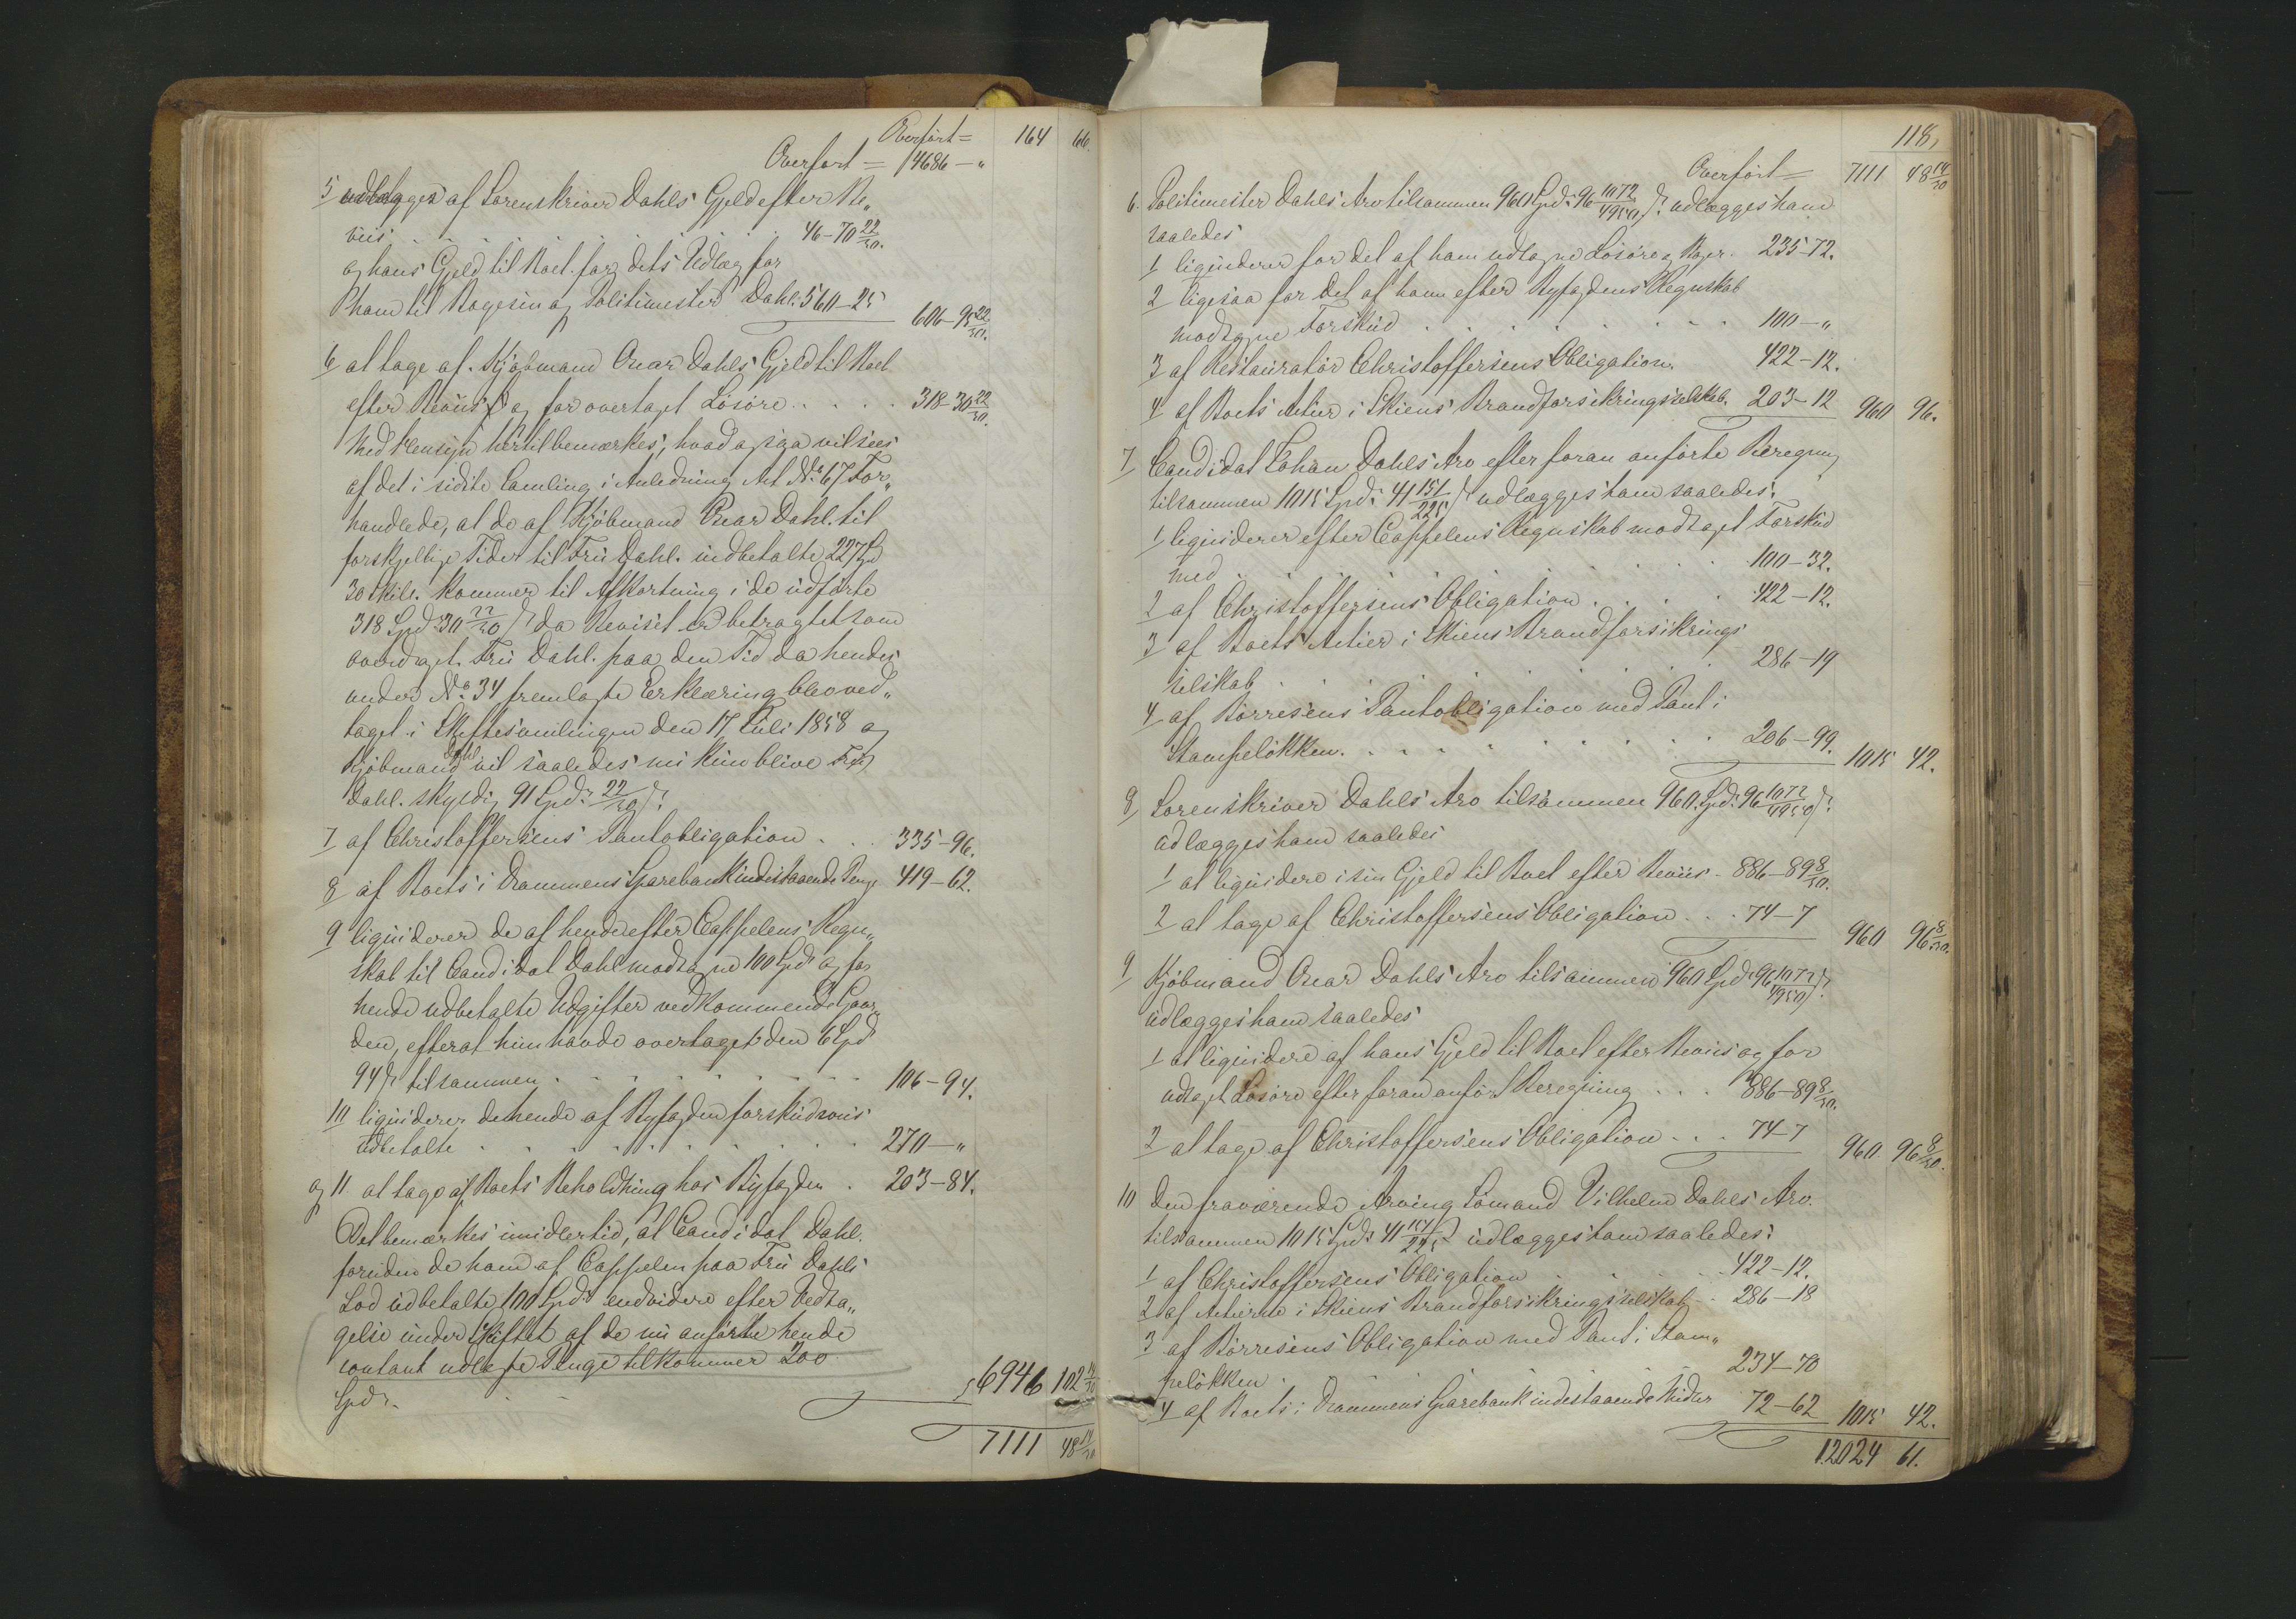 Overført = 164 66.
Overført = 4686 — "
5 udlægges af Sorenskriver Dahls Gjeld efter Re„
viis . . . . . . . . 46-70 22/30.
og hans Gjeld til Boet for dets Udlæg for
ham til Bogesen og Politimester Dahl. 560-25 606-95 22/30.
6 at tage af Kjøbmand Oscar Dahls Gjeld til Boet
efter Reviis og for overtaget Løsøre . . . . 318-30 22/30.
Med Hensyn hertil bemærkes, hvad ogsaa vil sees
af det i sidste Samling i Anledning Art No 67 For„
handlede, at de af Kjøbmand Oscar Dahl til
forskjellige Tider til Fru Dahl indbetalte 227 Spd
30 Skill. kommer til Afkortning i de udførte
318 Spd. 30 22/30 ß da Reviset er betragtet som
overdraget Fru Dahl paa den Tid da hendes
under No 34 fremlagte Erklæring blev ved„
taget i Skiftesamlingen den 17 Juli 1858 og
Kjøbmand Dahl vil saaledes nu kun blive Fru
Dahl skyldig 91 Spd. 22/30 ß.
7 af Christoffersens Pantobligation . . . 335-96.
8 af Boets i Drammens Sparebank indestaaende Penge 419-62.
9 liquiderer de af hende efter Cappelens Regn„
skab til Candidat Dahl modtagne 100 Spd og for
hende udbetalte Udgifter vedkommende Gaar„
den, efterat hun havde overtaget den 6 Spd
94 ß tilsammen . . . . . . . . 106-94.
10 liquiderer de hende af Byfogden forskudsviis
udbetalte . . . . . . . . . . 270 — "
og 11 at tage af Boets Beholdning hos Byfogden . 203-84.
Det bemærkes imidlertid, at Candidat Dahl
foruden de ham af Cappelen paa Fru Dahls
Lod udbetalte 100 Spd. endvidere efter Vedta„
gelse under Skiftet af de nu anførte hende
contant udlagte Penge tilkommer 200
Spd. . . 6946 102 14/30
7111 48 14/30
118,
Overført = 7111 48 14/30
6. Politimester Dahls Arv tilsammen 960 Spd. 96 1072/4950 ß. udlægges ham
saaledes
1 liquiderer for det af ham udtagne Løsøre og Bøger. 235-72.
2 ligesaa for det af ham efter Byfogdens Regnskab
modtagne Forskud . . . . . . . 100 — "
3 af Restauratør Christoffersens Obligation. 422-12.
4 af Boets Actier i Skiens Brandforsikringsselskab. 203-12 960 96.
7 Candidat Johan Dahls Arv efter foran anførte Beregning
tilsammen 1015 Spd. 41 151/225 ß udlægges ham saaledes:
1 liquiderer efter Cappelens Regnskab modtaget Forskud
med . . . . . . . . . 100-32.
2 af Christoffersens Obligation . . . . 422-12.
3 af Boets Actier i Skiens Brandforsikrings
selskab . . . . . . . . 286-19
4 af Børresens Pantobligation med Pant i
Stampeløkken. . . . . . . . . 206-99. 1015 42.
8 Sorenskriver Dahls Arv tilsammen 960. Spd. 96 1072/4950 ß.
udlægges ham saaledes
1 at liquidere i sin Gjeld til Boet efter Reviis - 886-89 8/30.
2 at tage af Christoffersens Obligation . . . 74-7 960 96 8/30.
9 Kjøbmand Oscar Dahls Arv tilsammen 960 Spd. 96 1072/4950 ß.
udlægges ham saaledes
1 at liquidere af hans Gjeld til Boet efter Reviis og for
udtaget Løsøre efter foran anført Beregning . . . 886-89 8/30.
2 at tage af Christoffersens Obligation . . . 74-7 960. 96 8/30.
10 Den fraværende Arving Sømand Vilhelm Dahls Arv.
tilsammen 1015 Spd. 41 151/225 ß udlægges ham saaledes:
1 af Christoffersens Obligation . . . . . 422-12.
2 af Actierne i Skiens Brandforsikringsselskab - 286-18
3 af Børresens Obligation med Pant i Stam„
peløkken . . . . . 234-70
4 af Boets i Drammens Sparebank indestaaende Midler 72-62 1015 42.
12024 61.